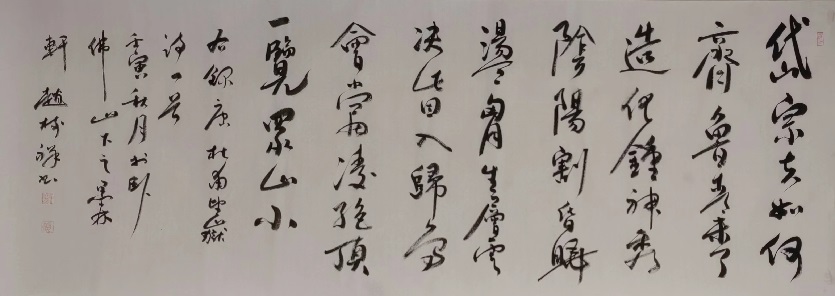 岱宗夫如何
齊魯青未了
造化鍾神秀
陰陽割昏曉
盪胸生層雲
决眥入歸鳥
會當凌絕頂
一覽眾山小
右錄唐杜甫望嶽
詩一首
壬寅秋月於卧
佛山下之墨林
軒 趙